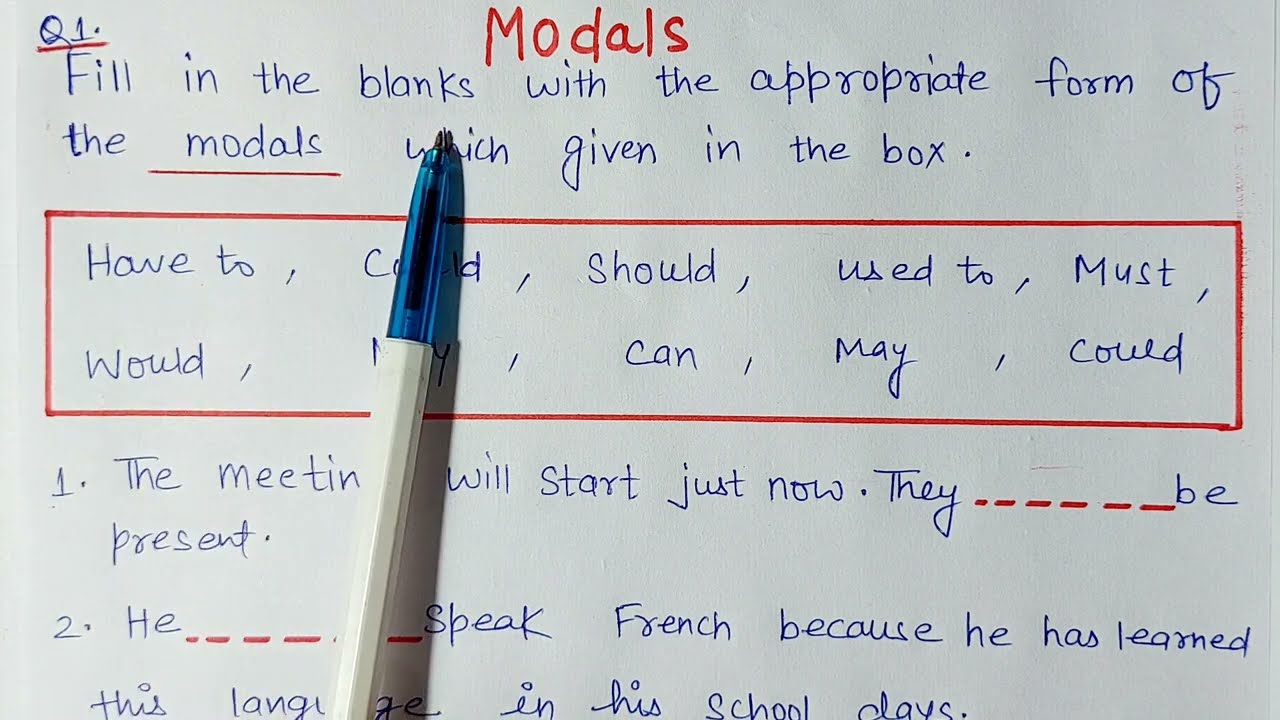 Q1.
Modals
Fill in the blanks with the appropriate form of
the modals which given in the box.
Have to, Could, Should, used to, Must,
Would, , Can, May, Could
1. The meeting will start just now. They ------ be
present.
2. He ------ Speak French because he has learned
this language in his school days.